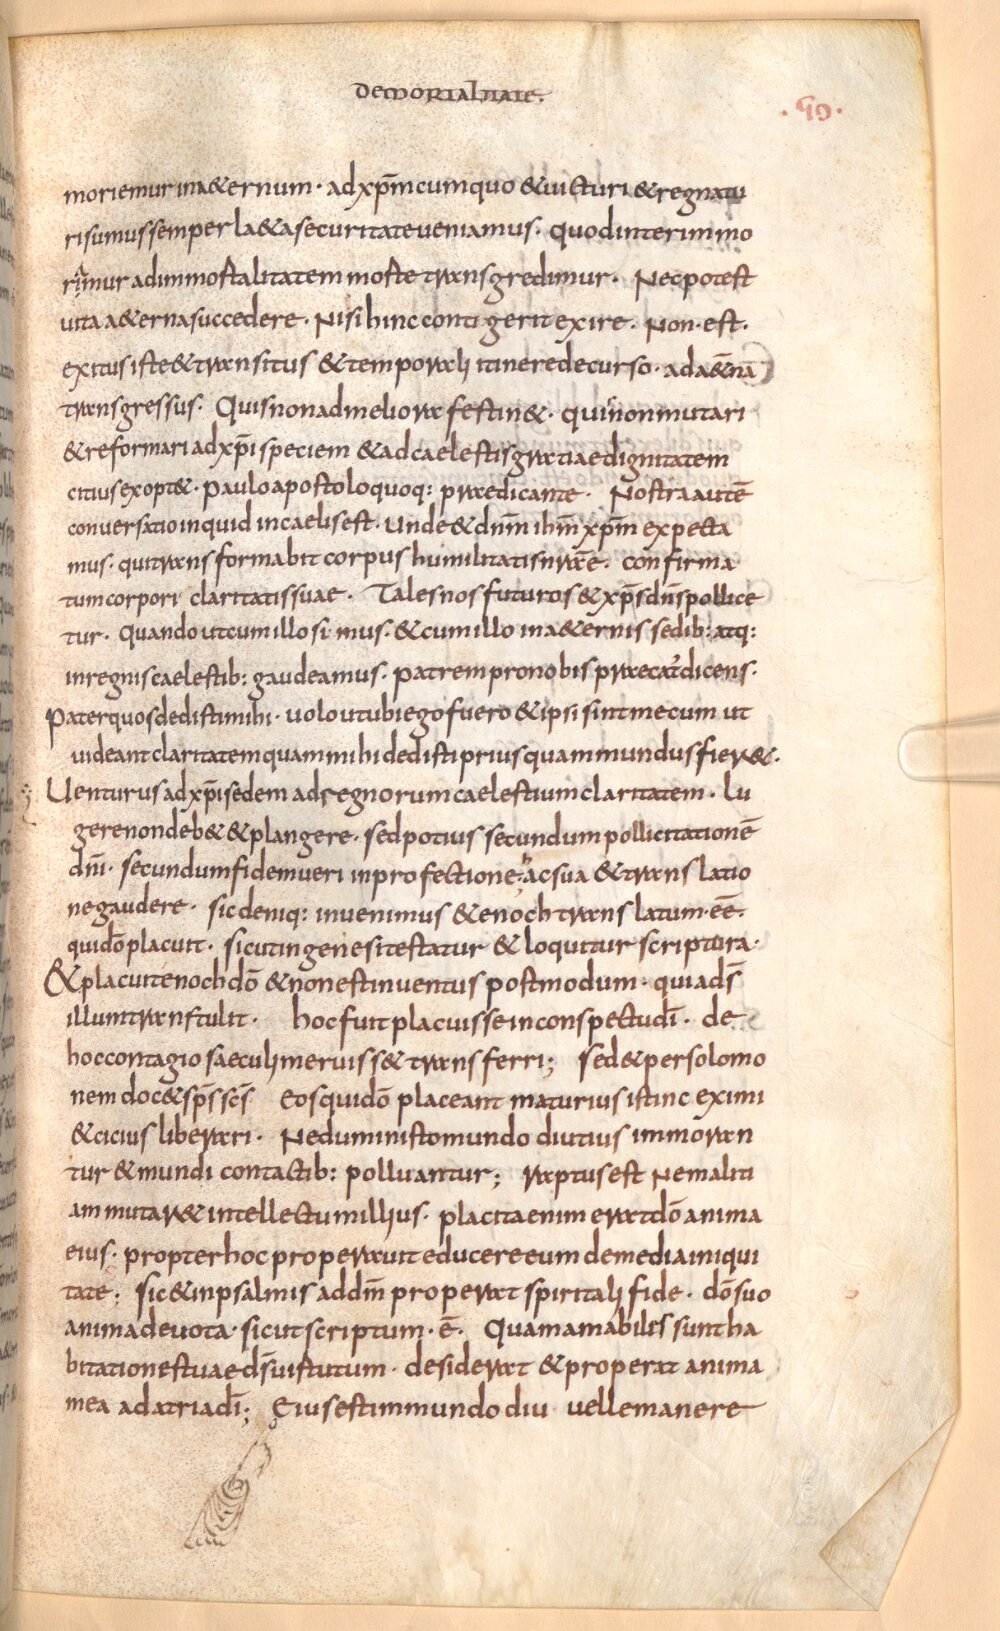 DEMORTALITATE.
·90·
moriemur in a&ernum· ad xp̄m cum quo &uicturi & regnatu
ri sumus semper la&a securitate ueniamus· quod interim mo
rimur ad inmortalitatem morte transgredimur· Nec potest
uita a&erna succedere· Nisi hinc contigerit exire. Non·est·
exitus iste & transitus & temporali itinere decurso· ad a&nā
transgressus· Quis non ad meliora festin&· qui non mutari
& reformari ad xp̄i speciem & ad caelestis gratiae dignitatem
citius exopt&· paulo apostolo quoq: praedicante· Nostra autē
conuersatio inquid in caelis est· unde & dnm̄ ihm̄ xpm̄ expecta
mus· qui transformabit corpus humilitatis nrāe· confirma
tum corpori claritatis suae· Tales nos futuros & xp̄s dn̄s pollice
tur· Quando ut cum illo simus· & cum illo in a&ernis sedib: atq:
in regnis caelestib: gaudeamus· patrem pro nobis praecat dicens·
Pater quos dedisti mihi· uolo ut ubi ego fuero & ipsi sint mecum ut
uideant claritatem quam mihi dedisti priusquam mundus fier&·
Uenturus ad xp̄i sedem ad regnorum caelestium claritatem· Lu
gere non deb& & plangere· sed potius secundum pollicitationē
dn̄i· secundum fidem ueri in profectione hac sua & translatio
ne gaudere· sic deniq: inuenimus & enoch translatum·eē·
qui dō placuit· sicut in genesi testatur & loquitur scriptura·
& placuit enoch dō & non est inuentus postmodum· quia ds̄
illum transtulit· hoc fuit placuisse in conspectu dī· de
hoc contagio saeculi meruiss& transferri; sed & per solomo
nem doc& sp̄s sc̄s Eos qui dō placeant maturius istinc eximi
& cicius liberari· Ne dum in isto mundo diutius immoran
tur & mundi contactib: polluantur; raptus est Ne maliti
am mutar& intellectum illius· placita enim erat dō anima
eius· propter hoc properauit educere eum de media iniqui
tate; sic & in psalmis ad dm̄ properat spiritali fide· dō suo
anima deuota· sicut scriptum·ē· Quam amabiles sunt ha
bitationes tuae ds̄ uirtutum· desiderat & properat anima
mea ad atria dī; Eius est in mundo diu uelle manere